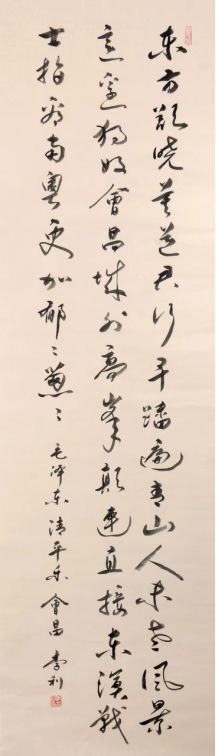 东方欲晓莫道君行早踏遍青山人未老風景
这边独好會昌城外高峯颠连直接东溟战
士指看南粤更加郁々葱々 毛泽东清平乐會昌 李利